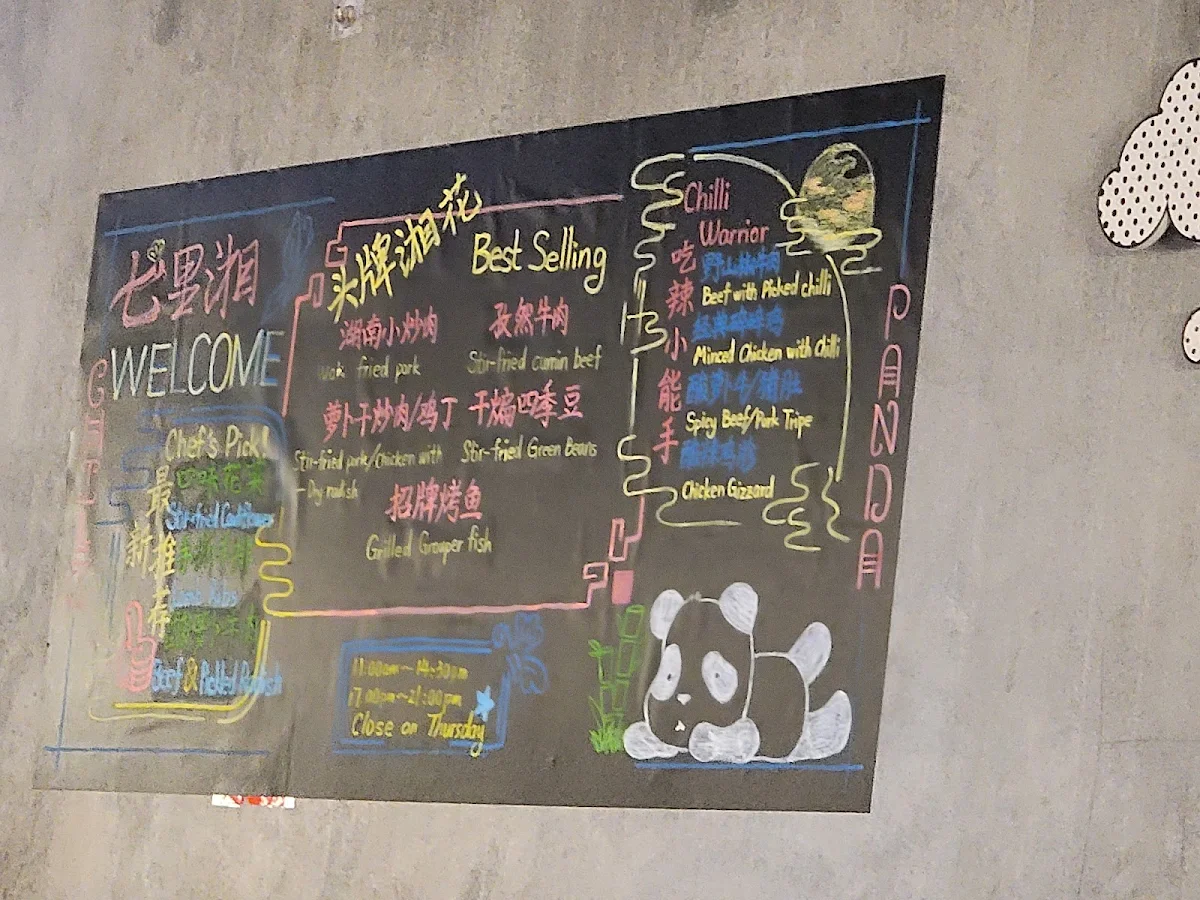 七里湘
WELCOME
Chef's Pick!
最新推荐
四味花菜
Stir-fried Cauliflower
Ribs
Beef & Pickled Radish
头牌湘花
Best Selling
湖南小炒肉
Wok fried pork
孜然牛肉
Stir-fried cumin beef
萝卜干炒肉/鸡丁
Stir-fried pork/chicken with
- Dry radish
干煸四季豆
Stir-fried Green Beans
招牌烤鱼
Grilled Grouper fish
11:00am~14:30pm
17.00pm~21:00pm
Close on Thursday
Chilli
Warrior
吃辣小能手
野山椒牛肉
Beef with Picked chilli
Minced Chicken with chilli
酸萝卜牛/猪肚
Spicy Beef/Pork Tripe
Chicken Gizzard
PANDA